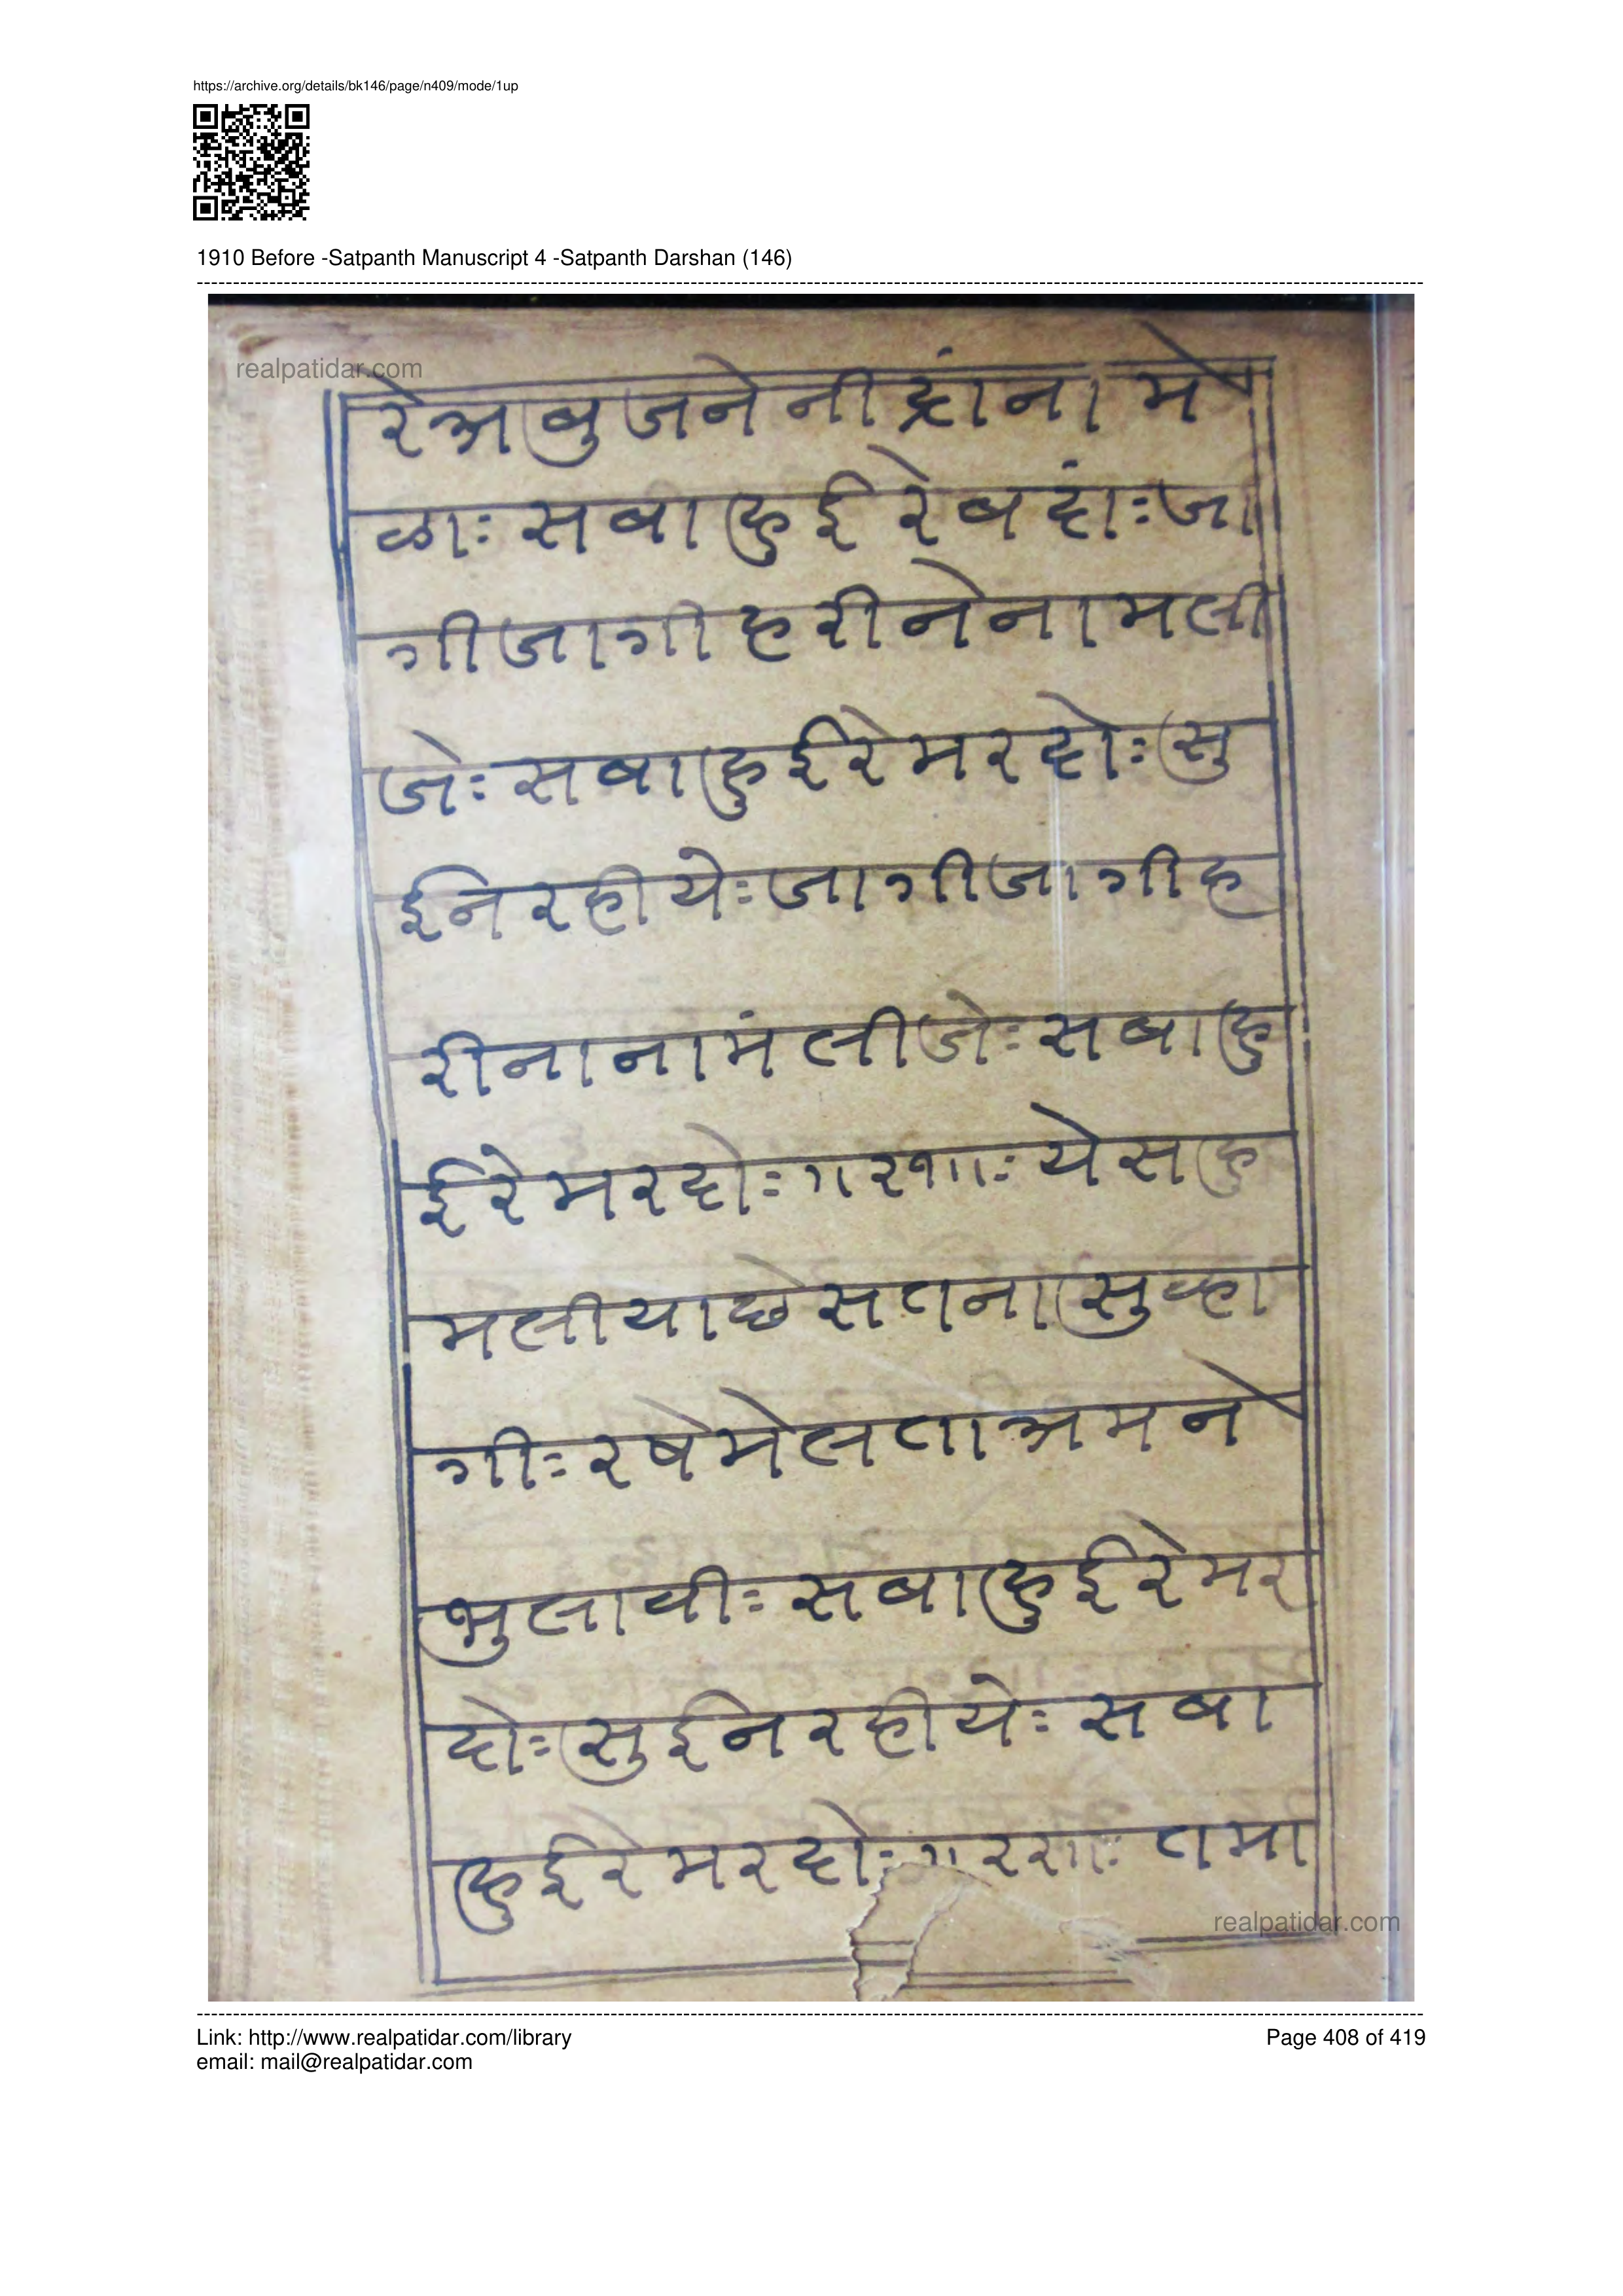 https://archive.org/details/bk146/page/n409/mode/1up
1910 Before -Satpanth Manuscript 4 -Satpanth Darshan (146)
realpatidar.com
रे अबुजने नीद्रांना मे
ळाः सबाहुई रे बदांः जा
गी जागी हरीने नाम ली
जेः सबाहुई रे मरदोः सु
ई नि रहीयेः जागी जागी ह
रीना नामं लीजेः सबाहु
ई रे मरदोः ।।२१।। ये सहु
मलीया छे सतना सुव्हा
गीः रषे मेलता अमने
भुलावीः सबाहुई रे मर
दोः सुई नि रहीयेः सबा
हुई रे मरदोः तमा
realpatidar.com
Link: http://www.realpatidar.com/library
Page 408 of 419
email: mail@realpatidar.com